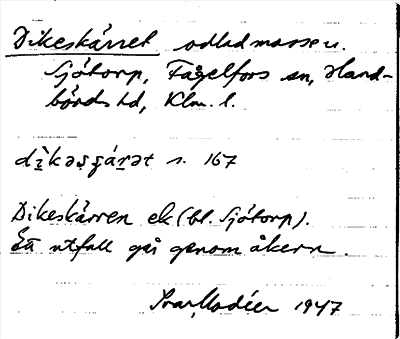 Dikeskärret odlad mosse n.
Sjötorp, Fagelfors sn, Hand-
börds hd, Klm. l.
dìkəsʂárət s. 167
Dikeskärren ek (bl. Sjötorp).
utfall på genom åkern.
Ivar Modéer 1947